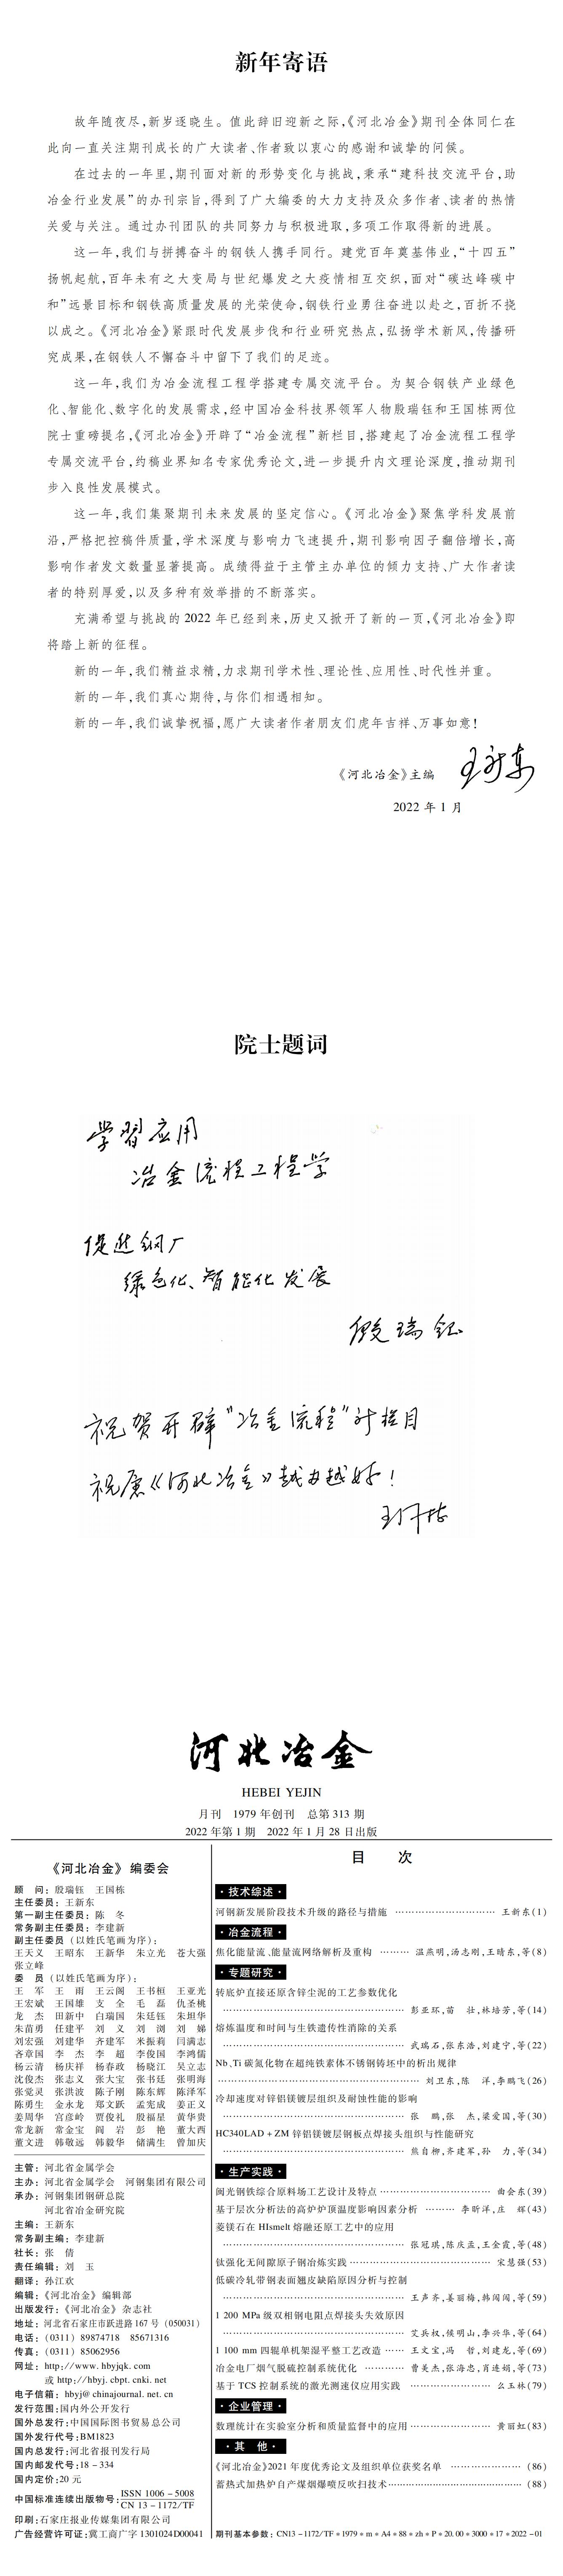 新年寄语
故年随夜尽,新岁逐晓生。值此辞旧迎新之际,《河北冶金》期刊全体同仁在
此向一直关注期刊成长的广大读者、作者致以衷心的感谢和诚挚的问候。
在过去的一年里,期刊面对新的形势变化与挑战,秉承“建科技交流平台,助
冶金行业发展”的办刊宗旨,得到了广大编委的大力支持及众多作者、读者的热情
关爱与关注。通过办刊团队的共同努力与积极进取,多项工作取得新的进展。
这一年,我们与拼搏奋斗的钢铁人携手同行。建党百年奠基伟业,“十四五”
扬帆起航,百年未有之大变局与世纪爆发之大疫情相互交织,面对“碳达峰碳中
和”远景目标和钢铁高质量发展的光荣使命,钢铁行业勇往奋进以赴之,百折不挠
以成之。《河北冶金》紧跟时代发展步伐和行业研究热点,弘扬学术新风,传播研
究成果,在钢铁人不懈奋斗中留下了我们的足迹。
这一年,我们为冶金流程工程学搭建专属交流平台。为契合钢铁产业绿色
化、智能化、数字化的发展需求,经中国冶金科技界领军人物殷瑞钰和王国栋两位
院士重磅提名,《河北冶金》开辟了“冶金流程”新栏目,搭建起了冶金流程工程学
专属交流平台,约稿业界知名专家优秀论文,进一步提升内文理论深度,推动期刊
步入良性发展模式。
这一年,我们集聚期刊未来发展的坚定信心。《河北冶金》聚焦学科发展前
沿,严格把控稿件质量,学术深度与影响力飞速提升,期刊影响因子翻倍增长,高
影响作者发文数量显著提高。成绩得益于主管主办单位的倾力支持、广大作者读
者的特别厚爱,以及多种有效举措的不断落实。
充满希望与挑战的 2022 年已经到来,历史又掀开了新的一页,《河北冶金》即
将踏上新的征程。
新的一年,我们精益求精,力求期刊学术性、理论性、应用性、时代性并重。
新的一年,我们真心期待,与你们相遇相知。
新的一年,我们诚挚祝福,愿广大读者作者朋友们虎年吉祥、万事如意!
《河北冶金》主编 王新东
2022 年 1 月
院士题词
学習应用
冶金流程工程学
促进钢厂
绿色化、智能化发展
殷瑞钰
祝贺开辟“冶金流程”新栏目
祝愿《河北冶金》越办越好!
王国栋
河北冶金
HEBEI YEJIN
月刊 1979 年创刊 总第 313 期
2022 年第 1 期 2022 年 1 月 28 日出版
《河北冶金》编委会
顾 问:殷瑞钰 王国栋
主任委员:王新东
第一副主任委员:陈 冬
常务副主任委员:李建新
副主任委员(以姓氏笔画为序):
王天义 王昭东 王新华 朱立光 苍大强
张立峰
委 员(以姓氏笔画为序):
王 军 王 雨 王云阁 王书桓 王亚光
王宏斌 王国雄 支 全 毛 磊 仇圣桃
龙 杰 田新中 白瑞国 朱廷钰 朱坦华
朱苗勇 任建平 刘 义 刘 浏 刘 娣
刘宏强 刘建华 齐建军 米振莉 闫满志
吝章国 李 杰 李 超 李俊国 李鸿儒
杨云清 杨庆祥 杨春政 杨晓江 吴立志
沈俊杰 张志义 张大宝 张书廷 张明海
张觉灵 张洪波 陈子刚 陈东辉 陈泽军
陈勇生 金水龙 郑文跃 孟宪成 姜正义
姜周华 宫彦岭 贾俊礼 殷福星 黄华贵
常龙新 常金宝 阎 岩 彭 艳 董大西
董文进 韩敬远 韩毅华 储满生 曾加庆
主管:河北省金属学会
主办:河北省金属学会 河钢集团有限公司
承办:河钢集团钢研总院
河北省冶金研究院
主编:王新东
常务副主编:李建新
社长:张 倩
责任编辑:刘 玉
翻译:孙江欢
编辑:《河北冶金》编辑部
出版发行:《河北冶金》杂志社
地址:河北省石家庄市跃进路 167 号(050031)
电话:(0311)89874718 85671316
传真:(0311)85062956
网址:http://www.hbyjqk.com
或 http://hbyj.cbpt.cnki.net
电子信箱:hbyj@chinajournal.net.cn
发行范围:国内外公开发行
国外总发行:中国国际图书贸易总公司
国外发行代号:BM1823
国内总发行:河北省报刊发行局
国内邮发代号:18-334
国内定价:20 元
中国标准连续出版物号:ISSN 1006-5008
CN 13-1172/TF
印刷:石家庄报业传媒集团有限公司
广告经营许可证:冀工商广字 1301024D00041
目 次
·技术综述·
河钢新发展阶段技术升级的路径与措施 ………… 王新东(1)
·冶金流程·
焦化能量流、能量流网络解析及重构 ……… 温燕明,汤志刚,王晴东,等(8)
·专题研究·
转底炉直接还原含锌尘泥的工艺参数优化
………… 彭亚环,苗 壮,林培芳,等(14)
熔炼温度和时间与生铁遗传性消除的关系
………… 武瑞石,张东浩,刘建宁,等(22)
Nb、Ti 碳氮化物在超纯铁素体不锈钢铸坯中的析出规律
………… 刘卫东,陈 洋,李鹏飞(26)
冷却速度对锌铝镁镀层组织及耐蚀性能的影响
………… 张 鹏,张 杰,梁爱国,等(30)
HC340LAD+ZM 锌铝镁镀层钢板点焊接头组织与性能研究
………… 熊自柳,齐建军,孙 力,等(34)
·生产实践·
闽光钢铁综合原料场工艺设计及特点 ………… 曲会东(39)
基于层次分析法的高炉炉顶温度影响因素分析 ……… 李昕洋,庄 辉(43)
菱镁石在 HIsmelt 熔融还原工艺中的应用
………… 张冠琪,陈庆孟,王金霞,等(48)
钛强化无间隙原子钢冶炼实践 ………… 宋慧强(53)
低碳冷轧带钢表面翘皮缺陷原因分析与控制
………… 王声齐,姜丽梅,韩闯闯,等(59)
1 200 MPa 级双相钢电阻点焊接头失效原因
………… 艾兵权,候明山,李兴华,等(64)
1 100 mm 四辊单机架湿平整工艺改造 …… 王文宝,冯 哲,刘建龙,等(69)
冶金电厂烟气脱硫控制系统优化 ………… 曹美杰,张海忠,肖连娟,等(73)
基于 TCS 控制系统的激光测速仪应用实践 ………… 么玉林(79)
·企业管理·
数理统计在实验室分析和质量监督中的应用 ………… 黄丽虹(83)
·其 他·
《河北冶金》2021 年度优秀论文及组织单位获奖名单 ………… (86)
蓄热式加热炉自产煤烟爆喷反吹扫技术 ………… (88)
期刊基本参数:CN13-1172/TF*1979*m*A4*88*zh*P*20.00*3000*17*2022-01